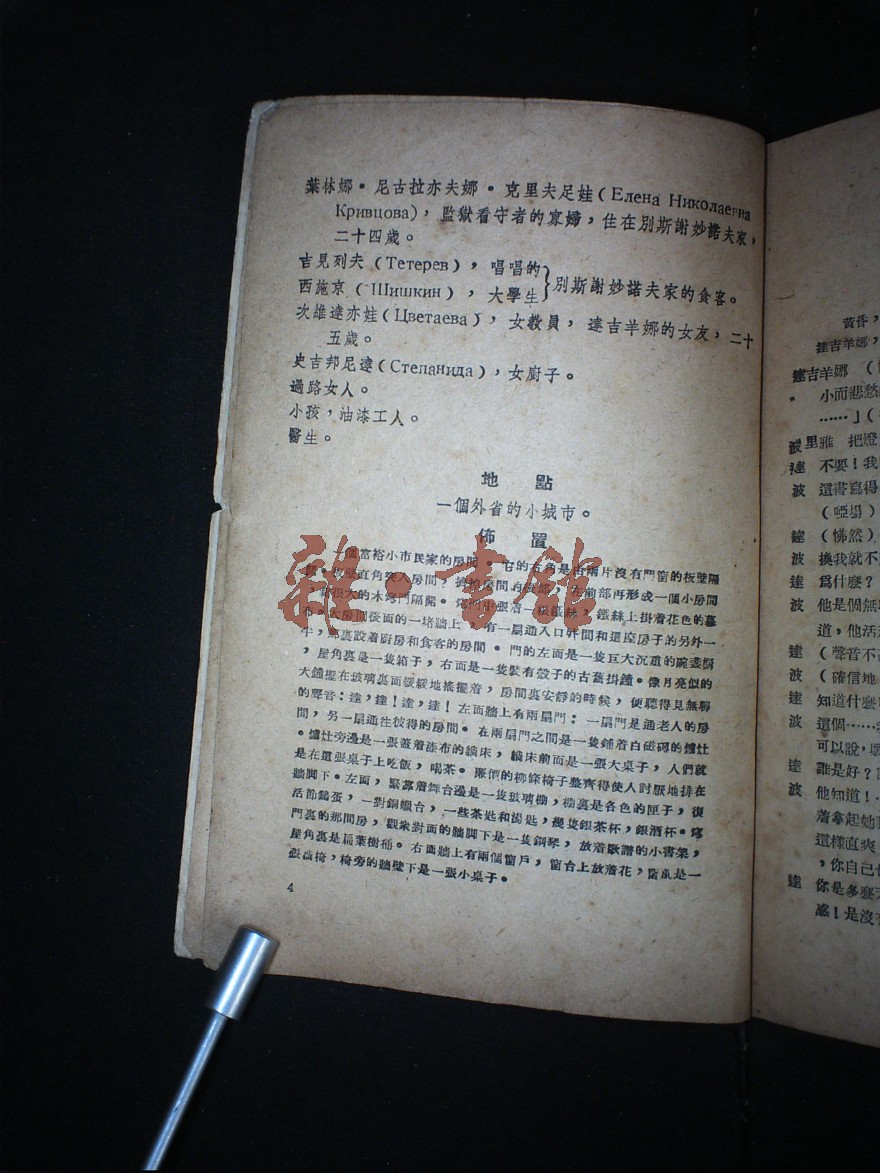 葉林娜•尼古拉亦夫娜•克里夫足娃(Елена Николаевна
Кривцова),監獄看守者的寡婦,住在別斯謝妙諾夫家,
二十四歲。
吉見列夫(Тетерев),唱唱的
西施京(Шишкин),大學生
別斯謝妙諾夫家的食客。
次雄達亦娃(Цветаева),女教員,達吉羊娜的女友,二十
五歲。
史吉邦尼達(Степанида),女廚子。
過路女人。
小孩,油漆工人。
醫生。
地點
一個外省的小城市。
佈置
一個富裕小市民家的房間。它的右角是由兩片沒有門窗的板壁隔
直角突入房間,在前部再形成一個小房間
很大的木穹門隔開。穹門中張着一根鐵絲,鐵絲上掛着花色的幕
布。大房間後面的一垛牆上,有一扇通入口
牛,那裏設着廚房和食客的房間。門的左面是一隻巨大沉重的碗盞櫥
,屋角裏是一隻箱子,右面是一隻裝有殼子的古舊掛鐘。像月亮似的
大鐘擺在玻璃裏面緩緩地搖擺着,房間裏安靜的時候,便聽得見無聊
的聲音:達,達!達,達!左面牆上有兩扇門:一扇門是通老人的房
間,另一扇通往彼得的房間。在兩扇門之間是一隻鋪着白磁磚的爐灶
。爐灶旁邊是一張蓋着漆布的牀,牀前面是一張大桌子,人們就
是在這張桌子上吃飯,喝茶。廉價的柳條椅子整齊得使人討厭地排在
牆脚下。左面,緊靠着舞台邊是一隻玻璃櫥,櫥裏是各色的匣子,復
活節鷄蛋,一對銅蠟台,一些茶匙和湯匙,幾隻銀茶杯,銀酒杯。穹
門裏的那間房,觀衆對面的牆脚下是一隻鋼琴,放着歌譜的小書架,
屋角裏是扁葉樹桶。右面牆上有兩個窗戶,窗台上放着花,窗前是一
張躺椅,椅旁的牆壁下是一張小桌子。
4
雜•書館
黃昏,
達吉羊娜,
達吉羊娜 (
小而悲愁
……」(
波里雅 把燈
達 不要!我
波 這書寫得
(啞場)
達 (怫然)
波 換我就不
達 爲什麼?
波 他是個無
道,他活
達 (聲音不
波 (確信地
達 知道什麼
波 這個……
可以說,
達 誰是好?
波 他知道!
着拿起她
這樣直爽
,你自己
達 你是多麼
感!是沒